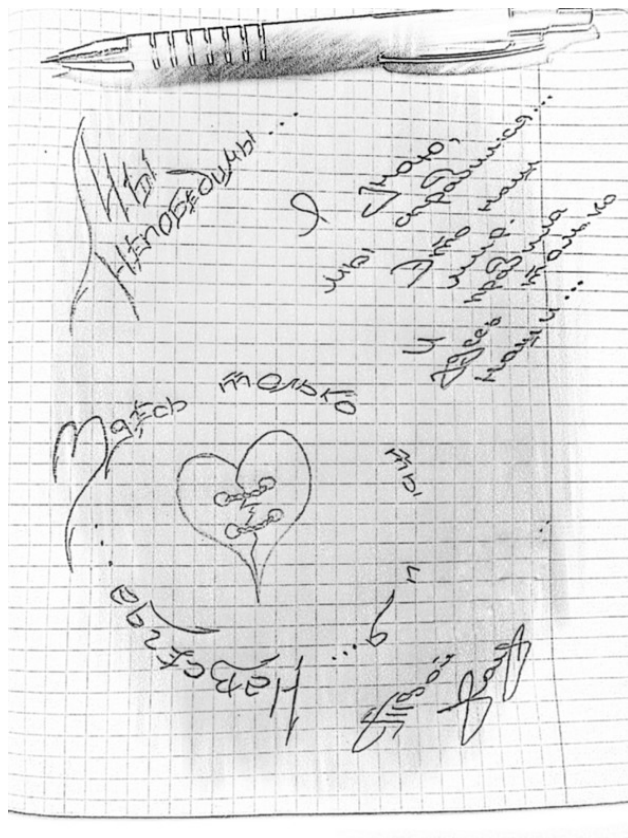 Мы
непобедимы...
Я знаю,
мы справимся...
Это наш
мир.
И правила
здесь только
наши...
Здесь только ты и я...
Навсегда...